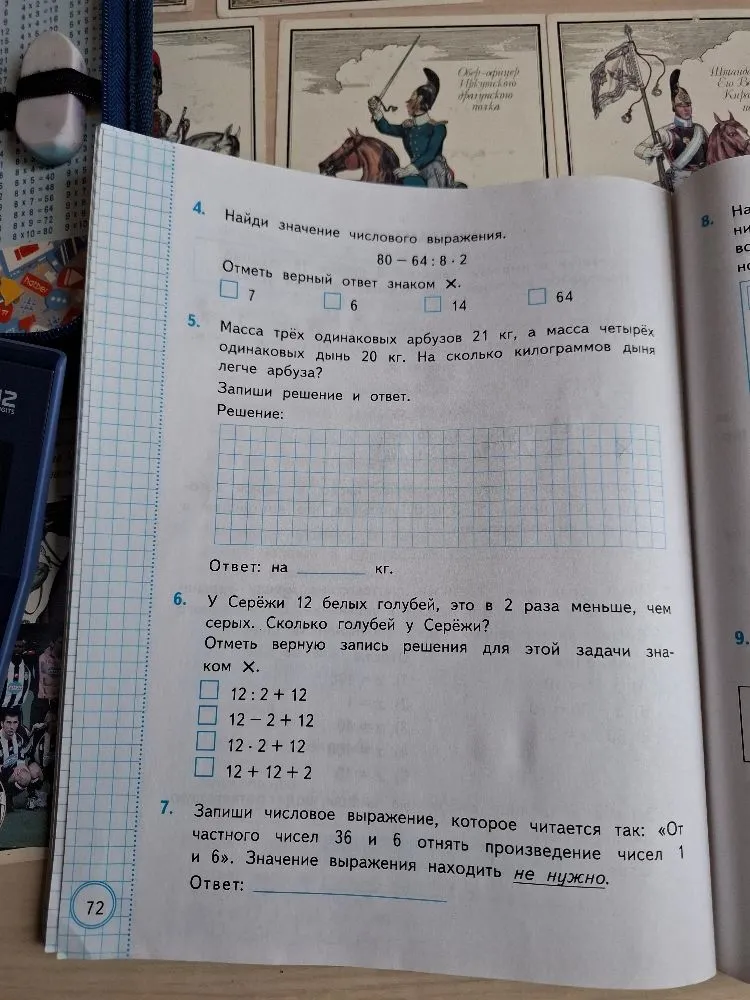 Обер-офицер
Иркутского
драгунского
полка
8 x 5 = 40
8 x 6 = 48
8 x 7 = 56
8 x 8 = 64
8 x 9 = 72
8 x 10 = 80
4. Найди значение числового выражения.
80 – 64 : 8 · 2
Отметь верный ответ знаком ✕.
7 6 14 64
5. Масса трёх одинаковых арбузов 21 кг, а масса четырёх
одинаковых дынь 20 кг. На сколько килограммов дыня
легче арбуза?
Запиши решение и ответ.
Решение:
Ответ: на ______ кг.
6. У Серёжи 12 белых голубей, это в 2 раза меньше, чем
серых. Сколько голубей у Серёжи?
Отметь верную запись решения для этой задачи зна-
ком ✕.
12 : 2 + 12
12 – 2 + 12
12 · 2 + 12
12 + 12 + 2
7. Запиши числовое выражение, которое читается так: «От
частного чисел 36 и 6 отнять произведение чисел 1
и 6». Значение выражения находить не нужно.
Ответ: ______
72
8.
9.